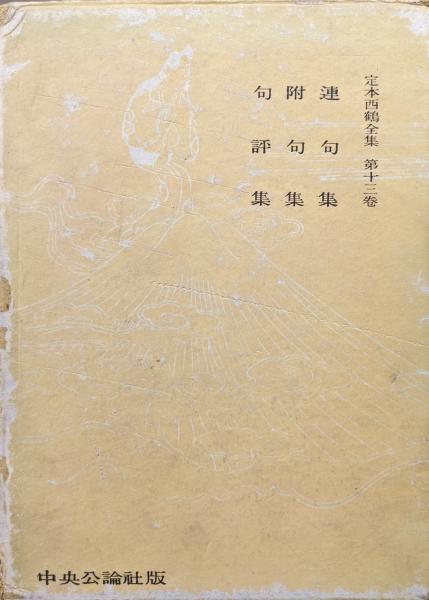 定本西鶴全集 第十三卷
連句集
附句集
句評集
中央公論社版